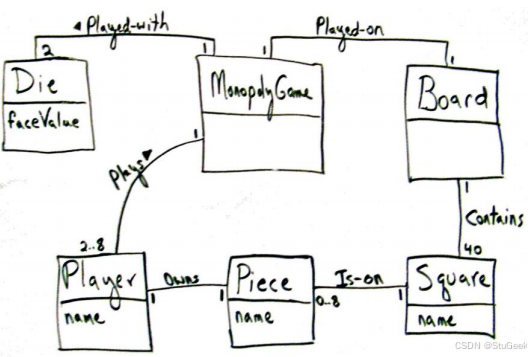 ◄ Played-with
Played-on
2
1
1
1
Die
faceValue
MonopolyGame
Board
1
Plays ►
1
Contains
2..8
40
Player
name
Owns
1
1
Piece
name
Is-on
0..8
1
Square
name
CSDN @StuGeek